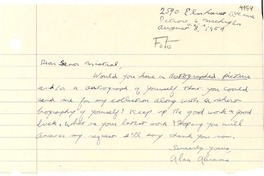 2590 Elmhurst
Detroit 6, Michigan
August 8, 1954
Foto
Dear Senor
Would you have a autographed picture
and/or a autograph of yourself that you could
send me for my collection along with a
biography of yourself? Keep up the good work & good
luck. What is you latest work? Hoping you will
answer my request I'll say thank you now.
Sincerely yours
Alan Abrams